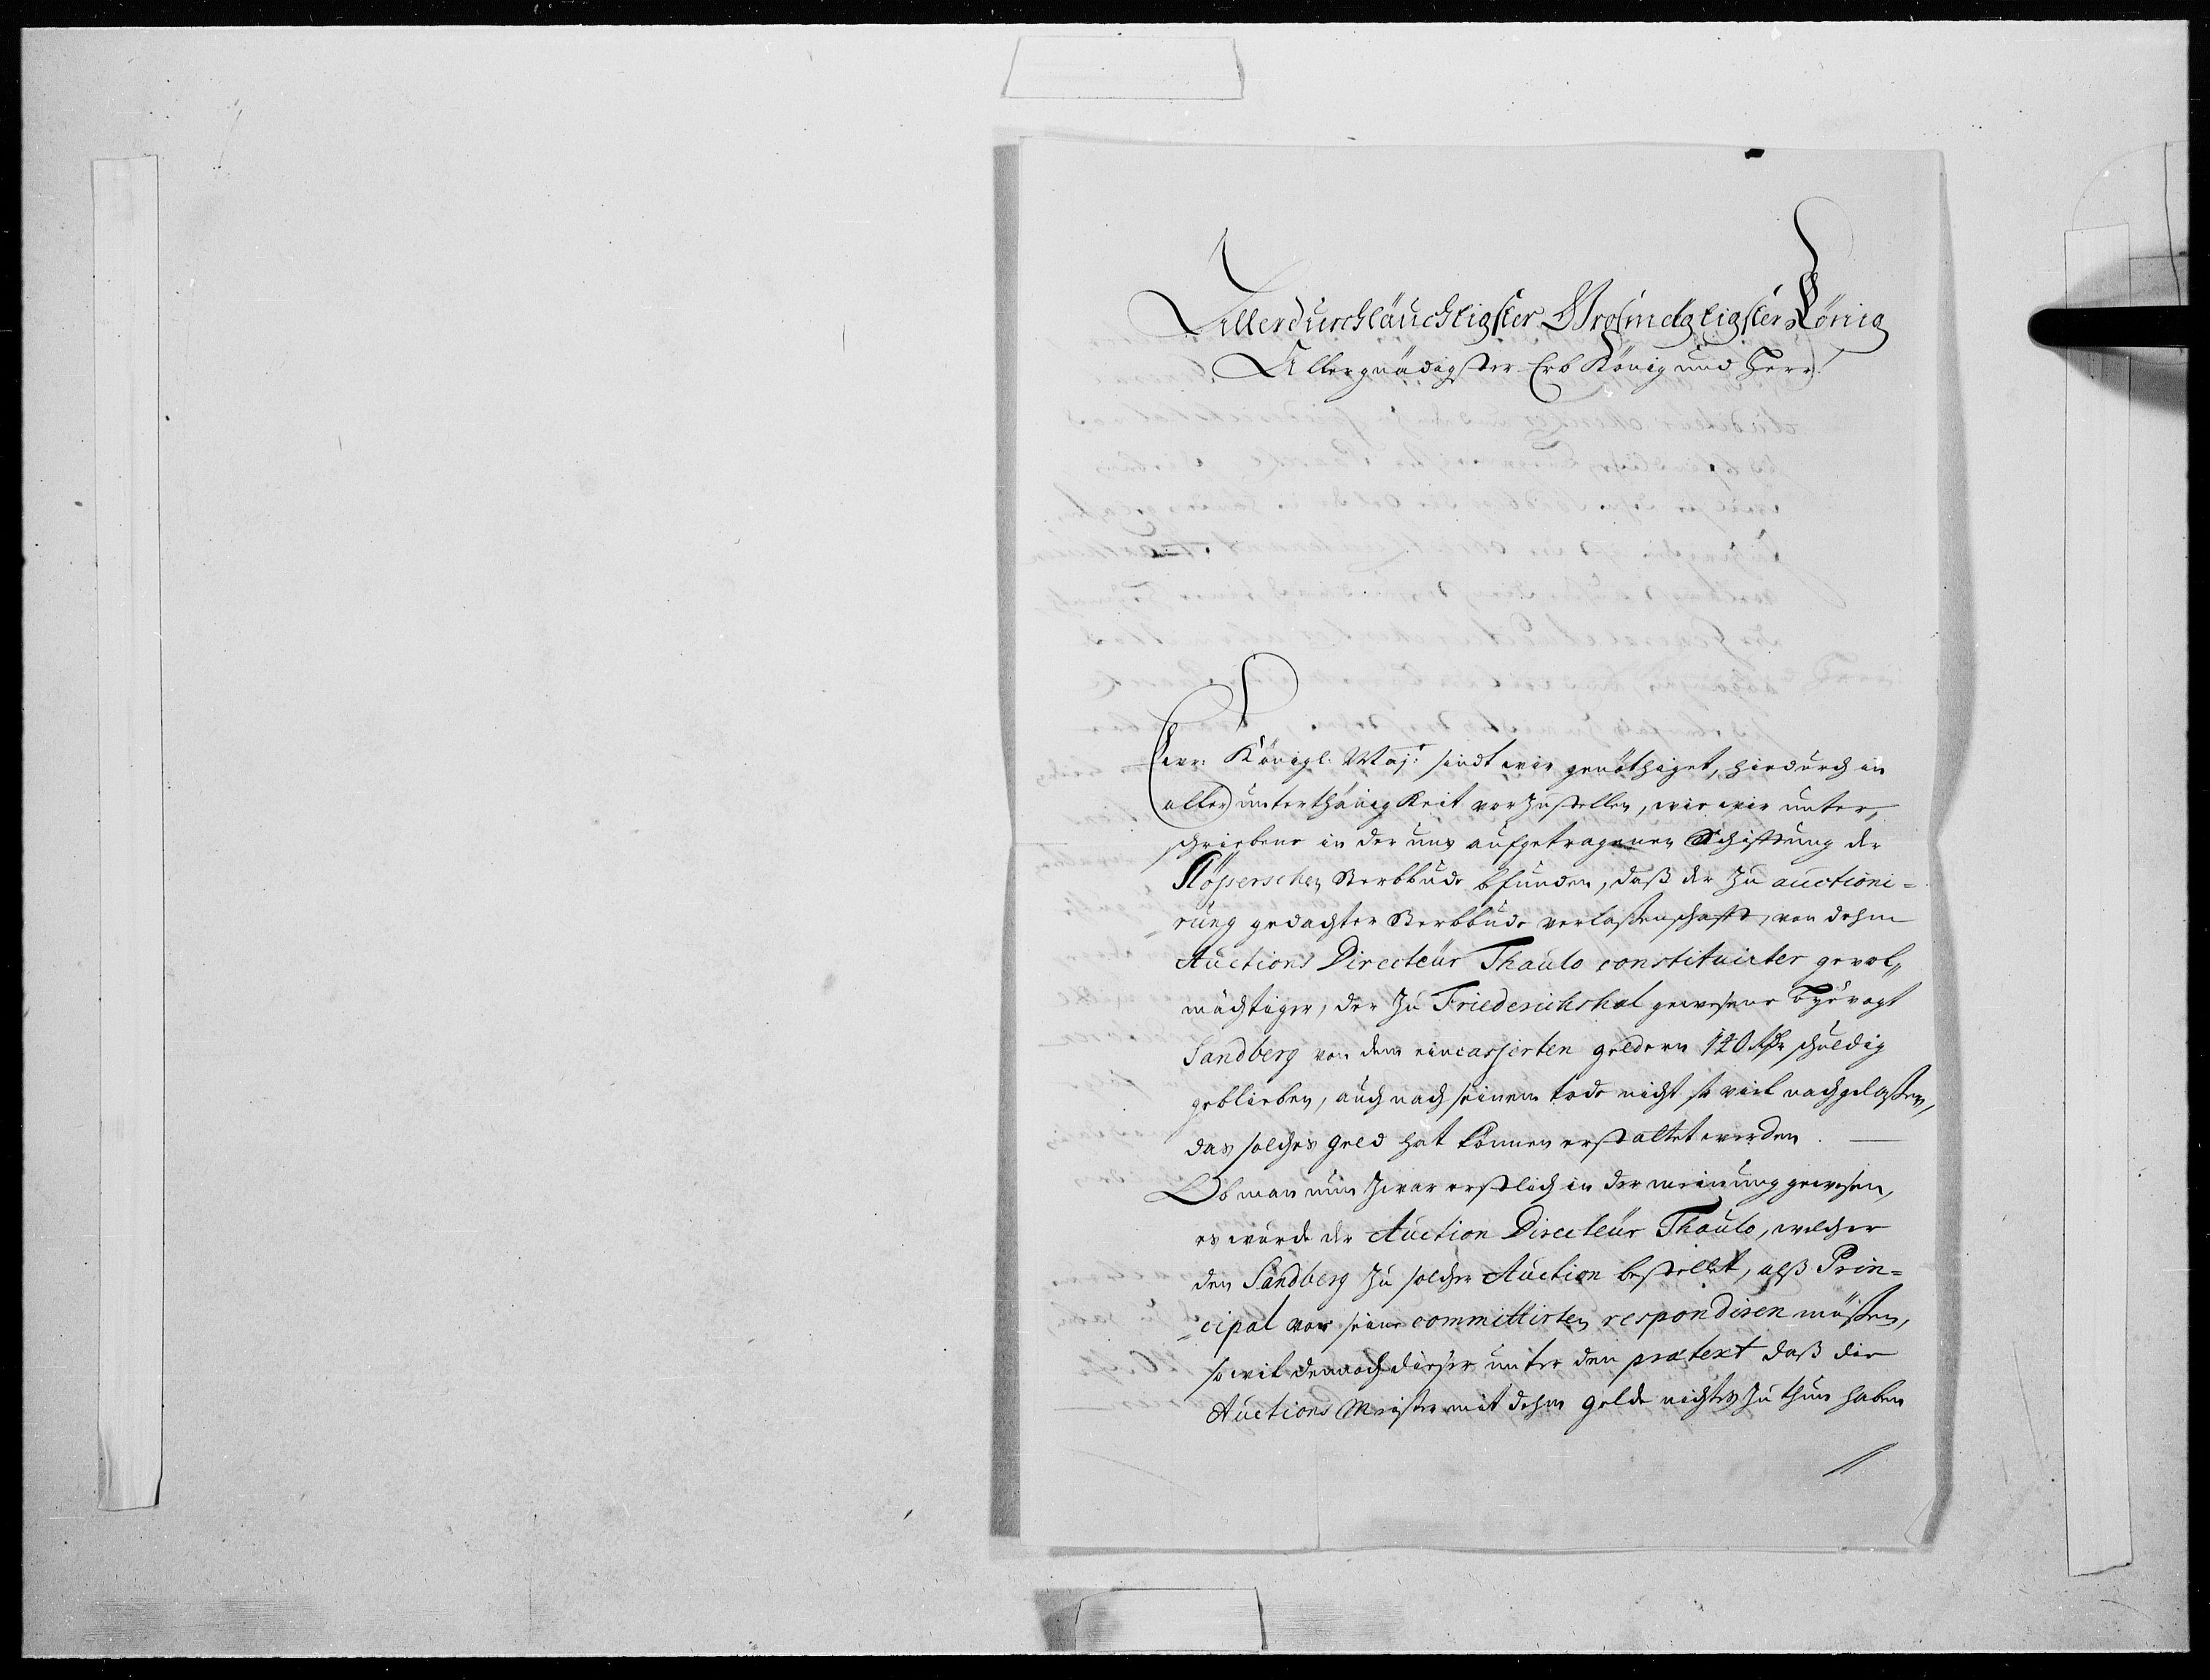 Allerdurchläuchtigster Grosmägtigster König
Allergnädigster Erb König und Herr!
Ewr: Königl: Maj: sindt wir genöthiget, hiedurch in
aller unterthänigkeit vorzustellen, wie wir unter,
schriebene in der uns aufgetragenen Schifftung der
Flöperschen Sterbbude befunden, daß der zu auctioni=
rung gedachter Sterbbude verlaßenschafft, von dehm
Auctions Directeur Thaulo constituirter gevol„
mächtiger, der zu Friederichshal gewesene Byevogt
Sandberg von dem eincassierten geldern 120 Rdr schuldig
geblieben, auch nach seinem tode nicht so viel nachgelaßen,
das solches geld hat können erstattet werden.
Ob man nun zwar erstlich in der meinung gewesen,
es würde der Auction Directeur Thaulo, welcher
den Sandberg zu solcher Auction bestellet, alß Prin=
cipal vor seine committirten respondiren müßen,
so wil dennoch dieser unter den prætext daß die
Auctions Meister mit dehm gelde nichts zu thun haben